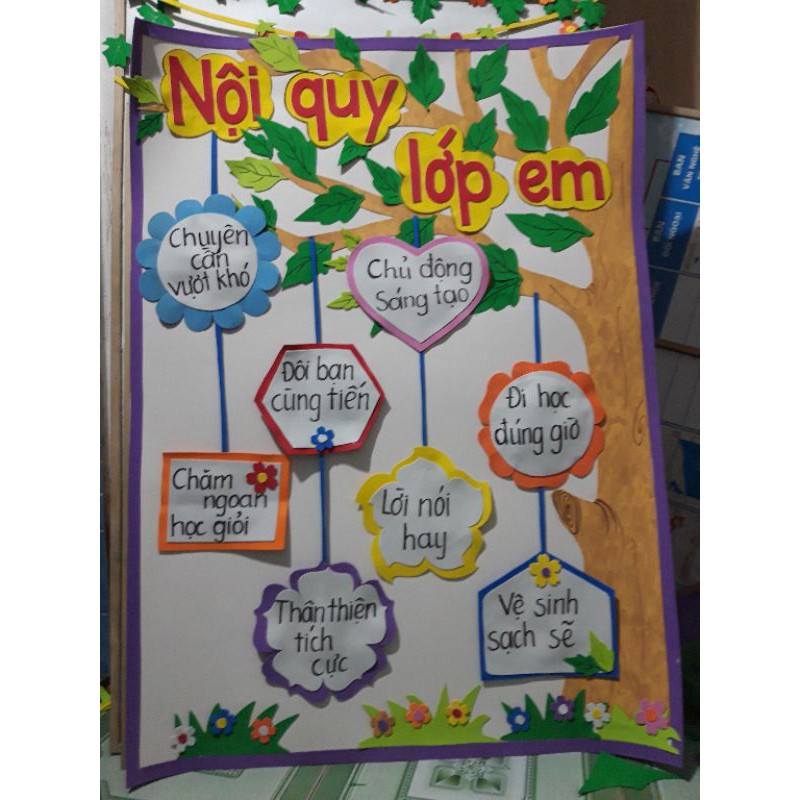 Nội quy
lớp em
Chuyên
cần
vượt khó
Chủ động
Sáng tạo
Đôi bạn
cùng tiến
Đi học
đúng giờ
Chăm
ngoan
học giỏi
Lời nói
hay
Thân thiện
tích
cực
Vệ sinh
sạch sẽ
BAN
VĂN NGHỆ
BAN
ĐỐI NGOẠI